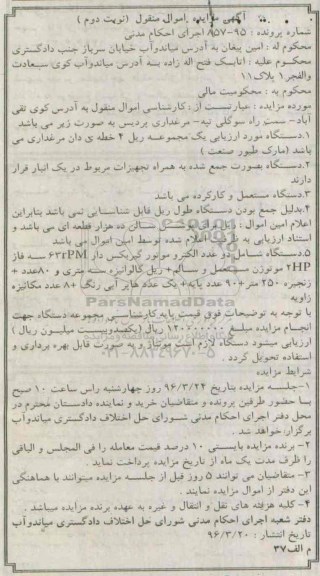 آگهی مزایده اموال منقول (نوبت دوم)
شماره پرونده : ۹۵-۸۵۷ اجرای احکام مدنی
محکوم له : امین پیغان به آدرس میاندوآب خیابان سرباز جنب دادگستری
محکوم علیه : اتابک فتح اله زاده بند آدرس میاندوآب کوی سعادت
والفجر ۱ پلاک ۱۱
محکوم به : محکومیت مالی
مورده مزایده : عبارتست از : کارشناسی اموال منقول به آدرس کوی تقی
آباد- سمت راه سوگلی تپه- مرغداری پردیس به صورت زیر می باشد
۱.دستگاه مورد ارزیابی یک مجموعه ریل ۴ خطه ی دان مرغداری می
باشد (مارک طیور صنعت)
۲.دستگاه بصورت جمع شده به همراه تجهیزات مربوط در یک انبار قرار
دارند
۳.دستگاه مستعمل و کارکرده می باشد
۴.بدلیل جمع بودن دستگاه طول ریل قابل شناسایی نمی باشد بنابراین
اعلام امین اموال : ریل برای یک سالن ده هزار قطعه ای می باشد و
استناد ارزیابی به اعلام شده توسط امین اموال می باشد
۵.دستگاه شامل دو عدد الکترو موتور گیربکس دار ۶۳rPM سه فاز
۲HP موتوزن مستعمل و سالم+ ریل گالوانیزه سته متری و ۸۰عدد +
زنجیره ۲۵۰ متر + ۹۰عدد پایه + یک عدد هاپر آبی رنگ + ۸عدد مکانیزه
زاویه
با توجه به توضیحات فوق قیمت پایه کارشناسی مجموعه دستگاه جهت
انجام مزایده مبلغ ۱۲۰۰۰۰۰۰۰ ریال (یکصدوبیست میلیون ریال)
ارزیابی میشود دستگاه لازم است مونتاژ و به صورت قابل بهره برداری و
استفاده تحویل گردد .
شرایط مزایده
۱-جلسه مزایده بتاریخ ۹۶/۳/۲۴ روز چهارشنبه راس ساعت ۱۰ صبح
با حضور طرفین پرونده و متقاضیان خرید و نماینده دادستان محترم در
محل دفتر اجرای احکام مدنی شورای حل اختلاف دادگستری میاندوآب
برگزار خواهد شد .
۲- برنده مزایده بایستی ۱۰ درصد قیمت معامله را فی المجلس و الباقی
را ظرف مدت یک ماه از تاریخ مزایده پرداخت نماید .
۳- متقاضیان می توانند ۵ روز قبل از جلسه مزایده میتوانند با هماهنگی
این دفتر از اموال مزایده نمایند .
۴- کلیه هزینه های نقل و انتقال و غیره به عهده برنده مزایده میباشد .
دفتر شعبه اجرای احکام مدنی شورای حل اختلاف دادگستری میاندوآب
تاریخ انتشار : ۹۶/۳/۲۰
م الف ۳۷